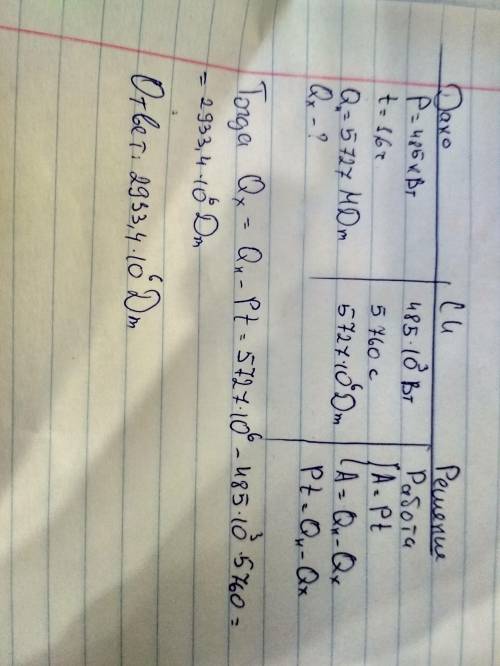 Дано
P = 485 кВт
t = 1,6 ч
Qн = 5727 МДж
Qх - ?
СИ
485·10³ Вт
5760 с
5727·10⁶ Дж
Решение
Работа
A = Pt
A = Qн - Qх
Pt = Qн - Qх
Тогда Qх = Qн - Pt = 5727·10⁶ - 485·10³·5760 =
= 2933,4·10⁶ Дж
Ответ: 2933,4·10⁶ Дж